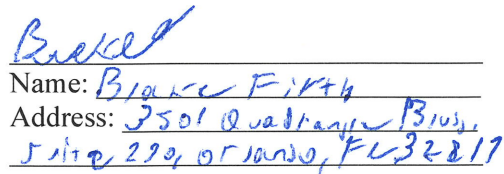 Name: Blake Firth
Address: 3501 Quadrangle Blvd,
Suite 270, Orlando, FL 32817